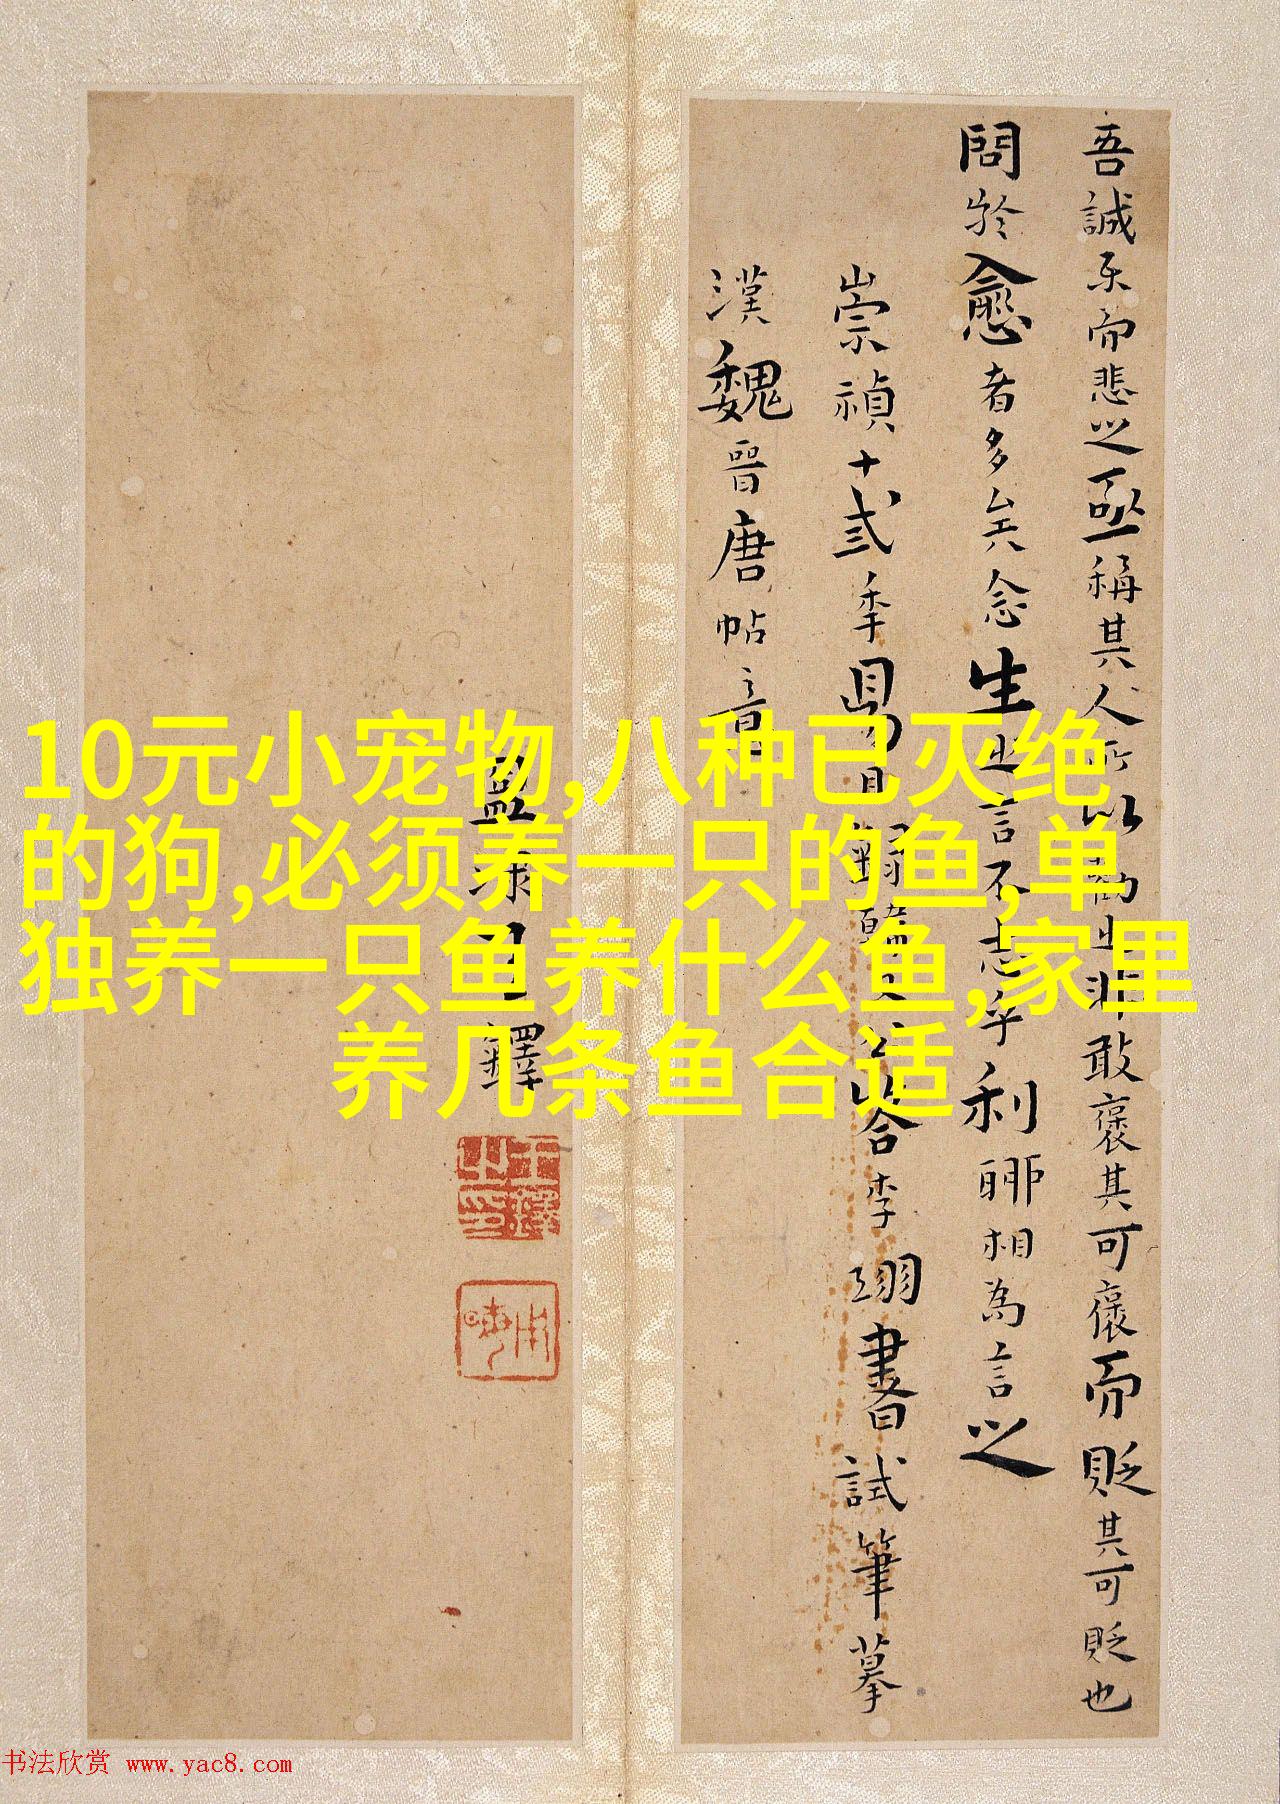 吾誠樂而悲之亟稱其人所以勸之非敢褒其可褒而貶其可貶也
問於愈者多矣念生之言不志乎利聊相為言之
崇禎十弍季
公答李翊書試筆摹
漢魏晉唐帖意
王鐸
10元小宠物,八种已灭绝
的狗,必须养一只的鱼,单
独养一只鱼养什么鱼,家里
养几条鱼合适
王鐸之印
书法欣赏 www.yac8.com